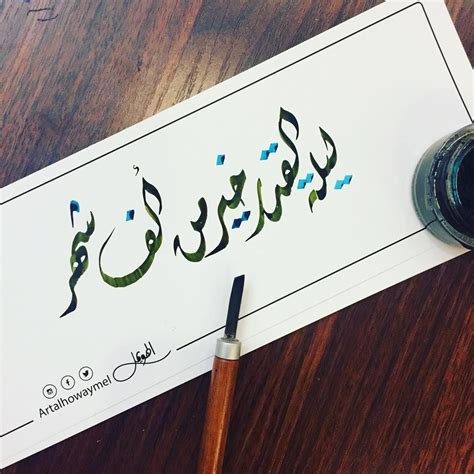 ليلة القدر خير من ألف شهر
الهويمل
Artalhowaymel